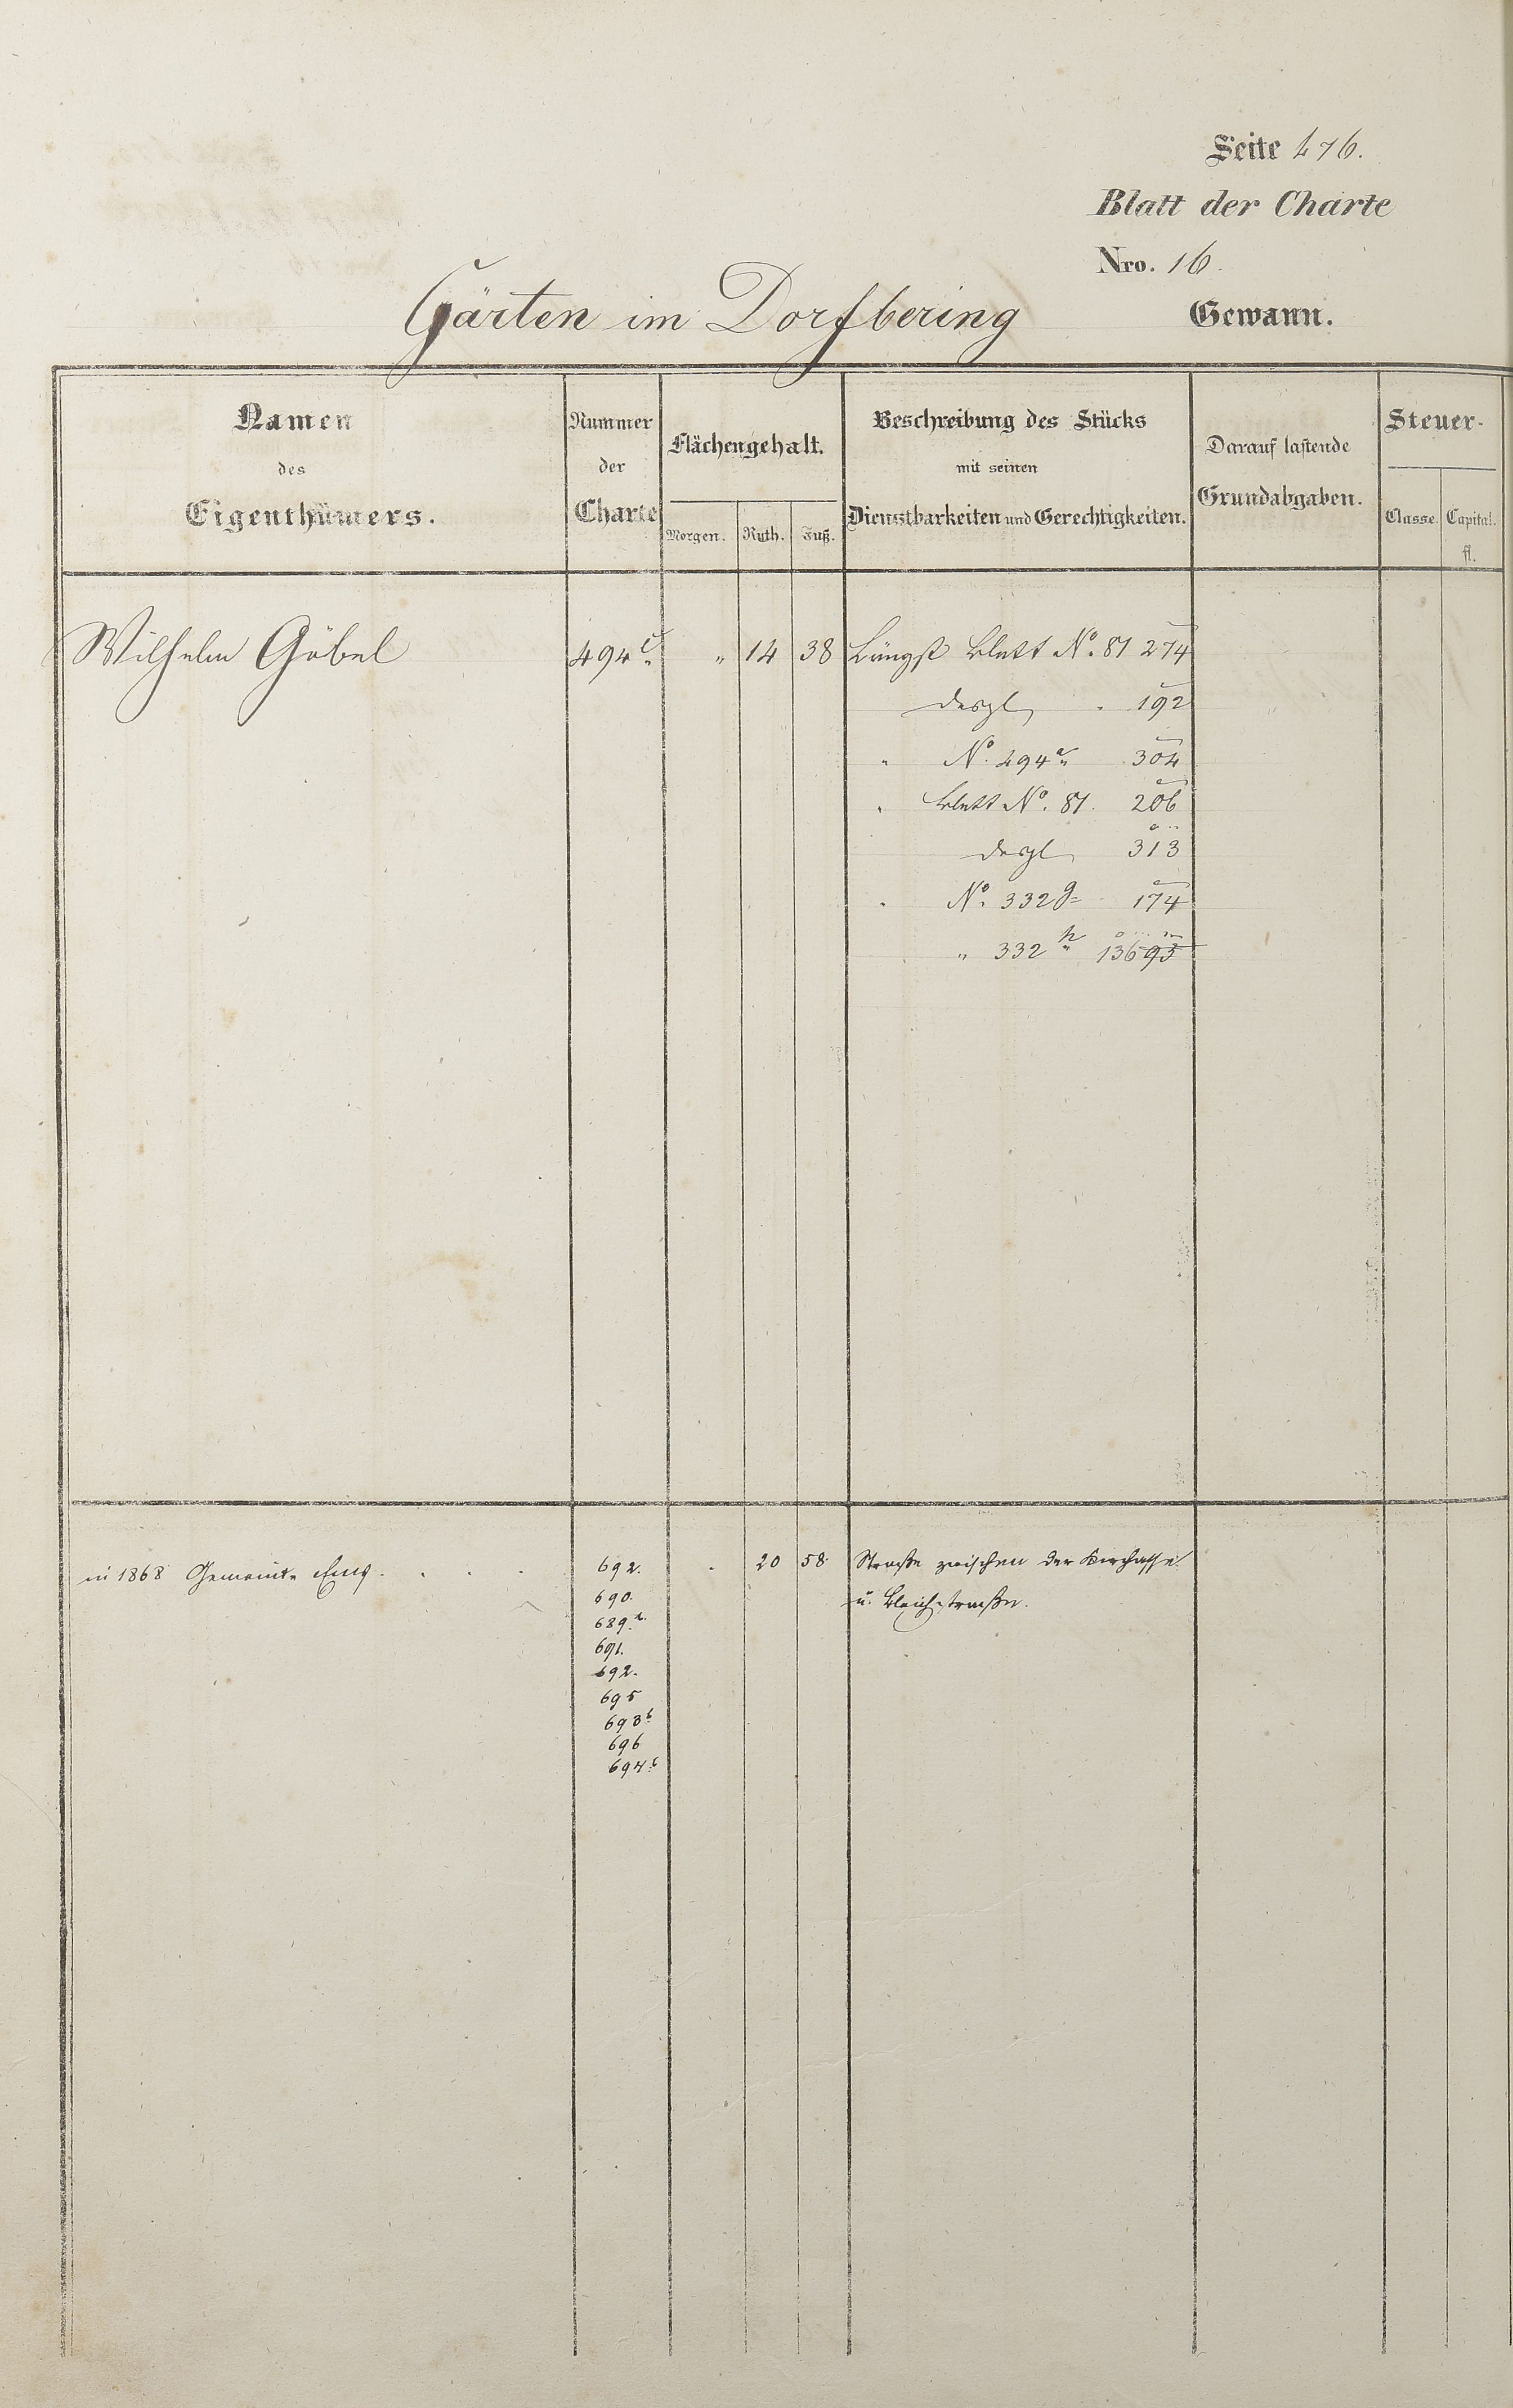 Seite 476.
Blatt der Charte
Nro. 16.
Gärten im Dorfbering Gewann.
Namen des Eigenthümers.
Nummer der Charte
Flächengehalt.
Morgen. Ruth. Fuß.
Beschreibung des Stücks mit seinen Dienstbarkeiten und Gerechtigkeiten.
Darauf lastende Grundabgaben.
Steuer-
Classe. Capital.
fl.
Wilhelm Göbel 494 c. " 14 38 Längst Blatt No. 81 274
desgl. 192
" No. 494 a. 304
" Blatt No. 81. 206
desgl. 313
" No. 332 g 174
" 332 h 136 93
in 1868 Gemeinde Ems . . . . 692. . 20 58. Straße zwischen der Kirchgasse
u. Bleichstraße.
690.
689 a.
691.
692.
695
693 b.
696
694 b.